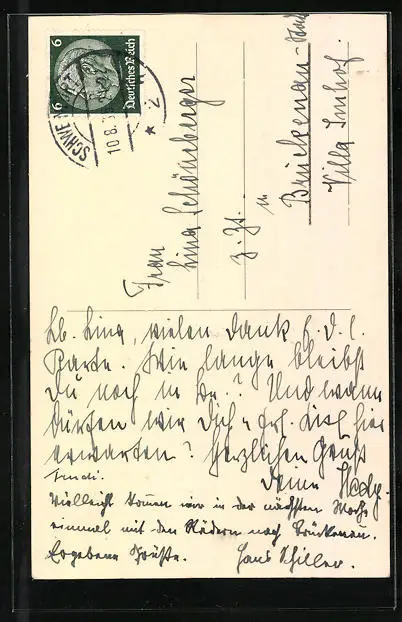 6 6
Deutsches Reich
SCHWEINFURT
10.8.3
2
Frau
Lina Schöneberger
z. Zt.
in
Brückenau-Stadt
Villa Imhof.
Lb. Lina, vielen Dank f. d. l.
Karte. Wie lange bleibst
Du noch in Br.? Und wann
dürfen wir Dich u. Frl. Lisl hier
erwarten? Herzlichen Gruß
Deine Hedy.
Vielleicht kommen wir in der nächsten Woche
einmal mit den Rädern nach Brückenau.
Ergebene Grüße. Hans Schiller.